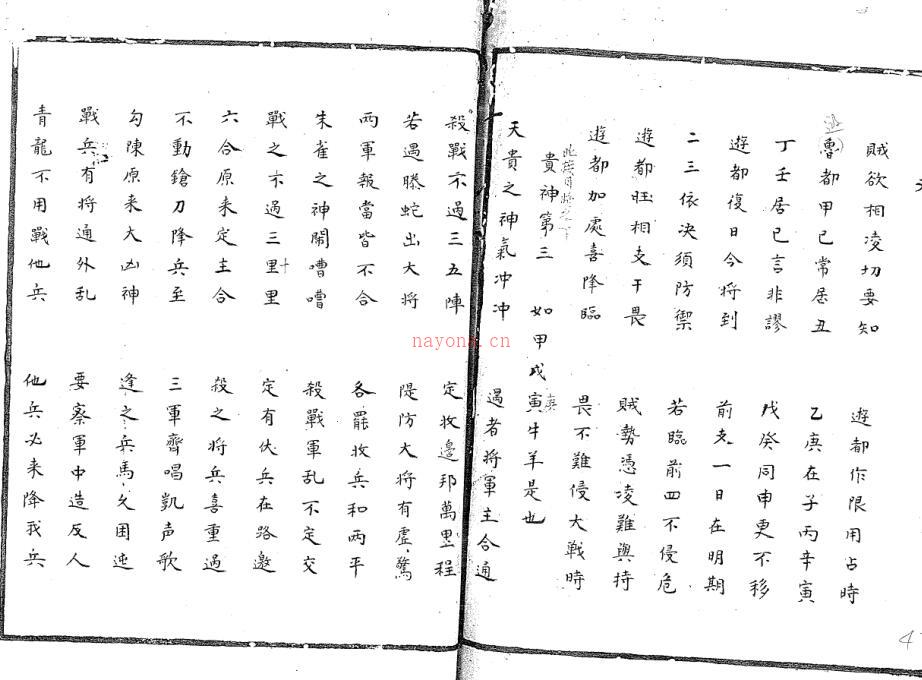 賊欲相凌切要知　遊都作限用占時
魯都甲己常居丑　乙庚在子丙辛寅
丁壬居巳言非謬　戊癸同申更不移
遊都復日今將到　前支一日在明期
二三依決須防禦　若臨前四不侵危
遊都旺相支干畏　賊勢憑凌難與持
遊都加處喜降臨　畏不難侵大戰時
貴神第三　如甲戊寅牛羊是也
庚
天貴之神氣冲冲　遇者將軍主合通
殺戰不過三五陣　定收邊邦萬里程
若遇騰蛇出大將　隄防大將有虛驚
兩軍報當皆不合　各罷收兵和兩平
朱雀之神鬧嘈嘈　殺戰軍乱不定交
戰之不過三里里　定有伏兵在路邀
十
六合原来定主合　殺之將兵喜重過
不動鎗刀降兵至　三軍齊唱凱声歌
勾陳原来大凶神　逢之兵馬久困迍
戰兵有將通外乱　要察軍中造反人
青龍不用戰他兵　他兵必来降我兵
nayona.cn
4